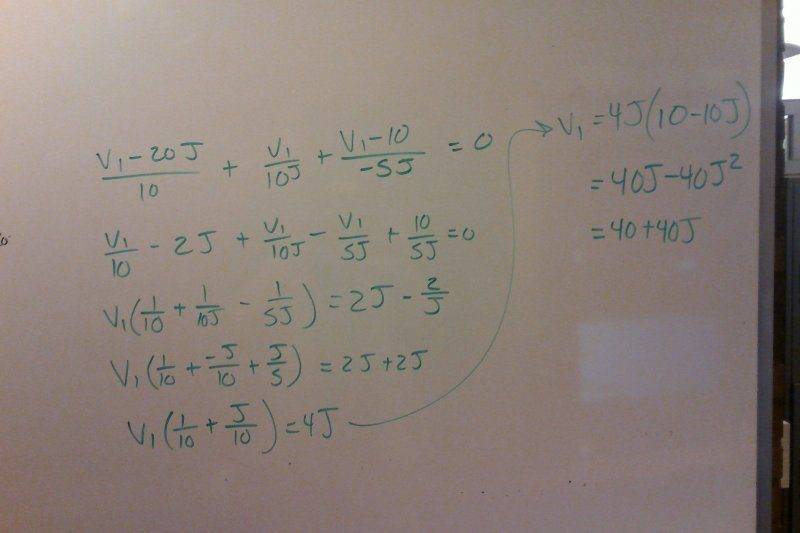 (V₁ - 20J)/10 + V₁/10J + (V₁ - 10)/-5J = 0
V₁/10 - 2J + V₁/10J - V₁/5J + 10/5J = 0
V₁(1/10 + 1/10J - 1/5J) = 2J - 2/J
V₁(1/10 + -J/10 + J/5) = 2J + 2J
V₁(1/10 + J/10) = 4J
V₁ = 4J(10 - 10J)
= 40J - 40J²
= 40 + 40J